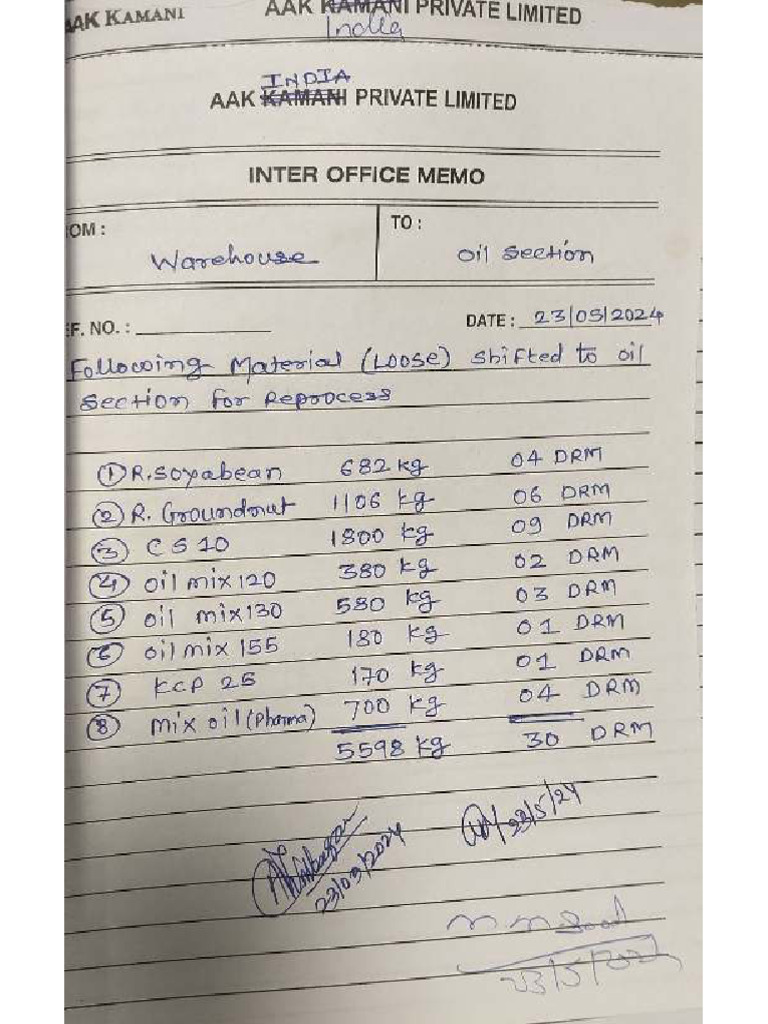 AAK KAMANI
AAK KAMANI PRIVATE LIMITED
India
INDIA
AAK KAMANI PRIVATE LIMITED
INTER OFFICE MEMO
OM :
TO :
Warehouse
Oil Section
F. NO. :
DATE : 23/05/2024
Following Material (Loose) Shifted to oil
Section for Reprocess
① R. Soyabean 682 kg 04 DRM
② R. Groundnut 1106 kg 06 DRM
③ CS 10 1800 kg 09 DRM
④ oil mix 120 380 kg 02 DRM
⑤ oil mix 130 580 kg 03 DRM
⑥ oil mix 155 180 kg 01 DRM
⑦ KCP 25 170 kg 01 DRM
⑧ mix oil (Pharma) 700 kg 04 DRM
5598 kg 30 DRM
23/5/24
23/05/2024